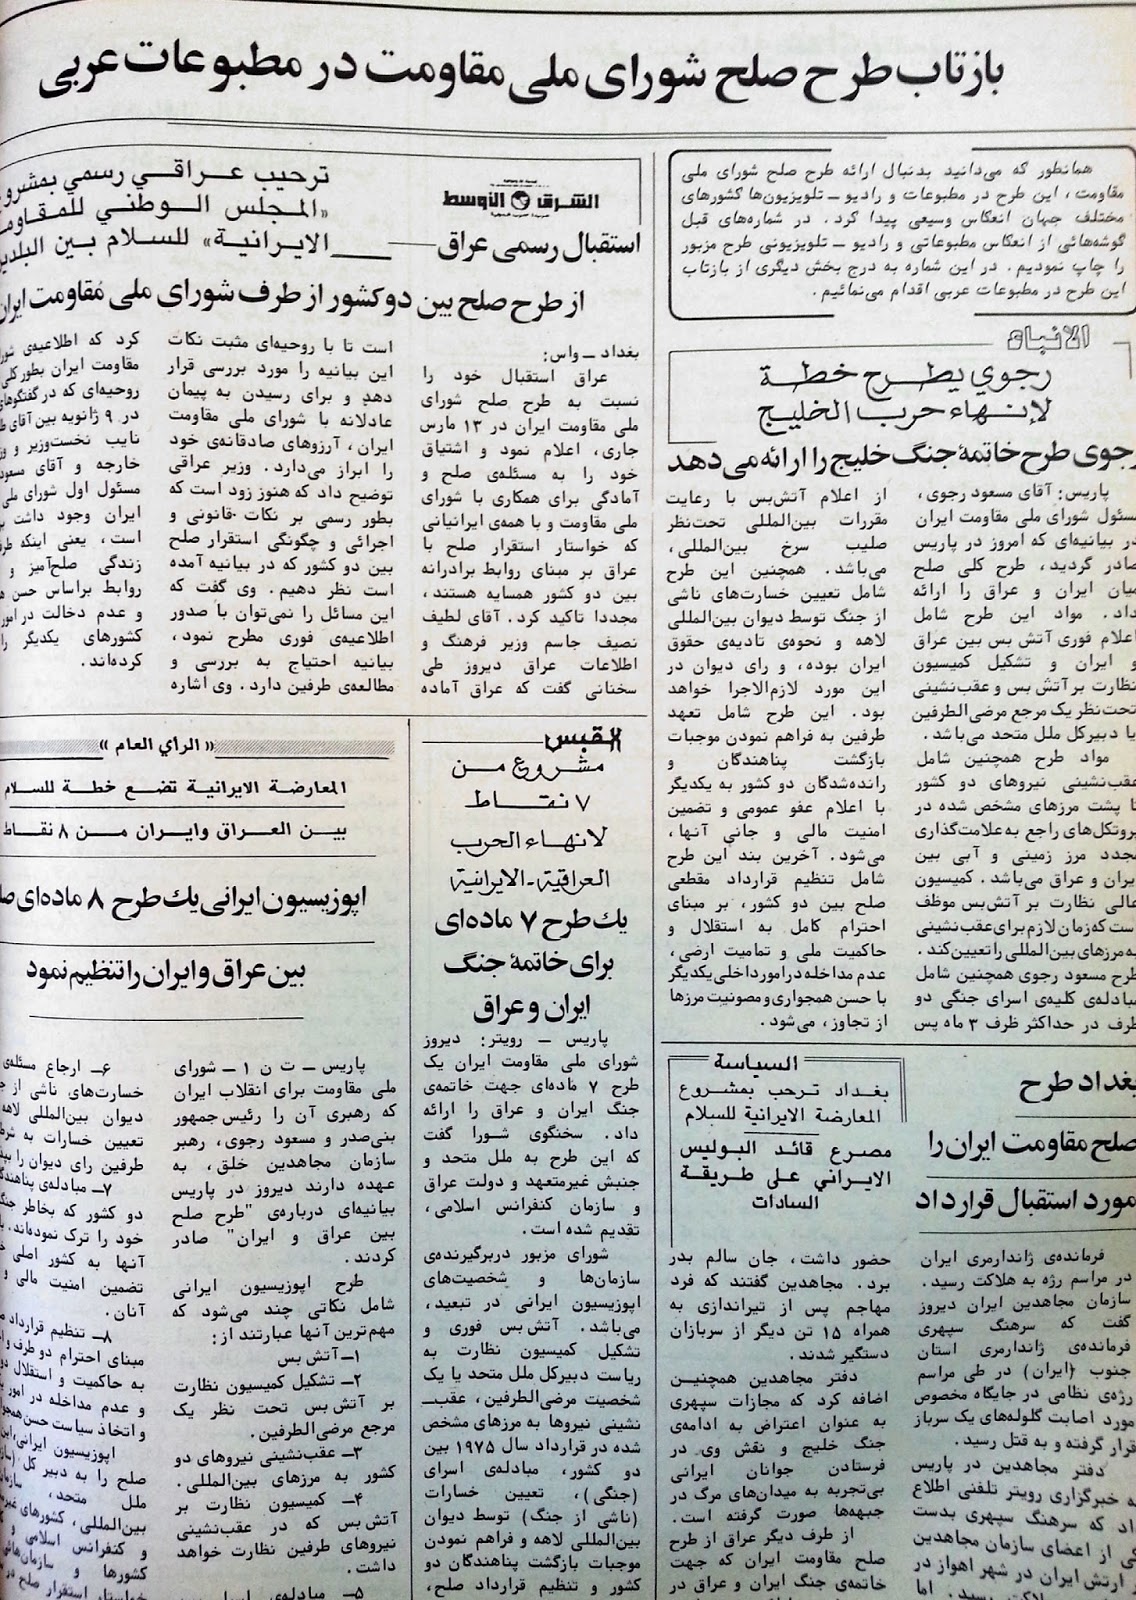 بازتاب طرح صلح شورای ملی مقاومت در مطبوعات عربی
همانطور که می‌دانید بدنبال ارائه طرح صلح شورای ملی
مقاومت، این طرح در مطبوعات و رادیو ـ تلویزیون‌ها کشورهای
مختلف جهان انعکاس وسیعی پیدا کرد. در شماره‌های قبل
گوشه‌هائی از انعکاس مطبوعاتی و رادیو ـ تلویزیونی طرح مزبور
را چاپ نمودیم. در این شماره به درج بخش دیگری از بازتاب
این طرح در مطبوعات عربی اقدام می‌نمائیم.
الانباء
رجوي يطرح خطة
لإنهاء حرب الخليج
رجوی طرح خاتمهٔ جنگ خلیج را ارائه می‌دهد
پاریس: آقای مسعود رجوی،
مسئول شورای ملی مقاومت ایران
در بیانیه‌ای که امروز در پاریس
صادر گردید، طرح کلی صلح
میان ایران و عراق را ارائه
داد. مواد این طرح شامل
اعلام فوری آتش بس بین عراق
و ایران و تشکیل کمیسیون
نظارت بر آتش بس و عقب‌نشینی
تحت‌نظر یک مرجع مرضی‌الطرفین
یا دبیرکل ملل متحد می‌باشد.
مواد طرح همچنین شامل
عقب‌نشینی نیروهای دو کشور
تا پشت مرزهای مشخص شده در
پروتکل‌های راجع به علامت‌گذاری
مجدد مرز زمینی و آبی بین
ایران و عراق می‌باشد. کمیسیون
عالی نظارت بر آتش‌بس موظف
است که زمان لازم برای عقب‌نشینی
به مرزهای بین‌المللی را تعیین کند.
طرح مسعود رجوی همچنین شامل
مبادله‌ی کلیه‌ی اسرای جنگی دو
طرف در حداکثر ظرف ۳ ماه پس
از اعلام آتش‌بس با رعایت
مقررات بین‌المللی تحت‌نظر
صلیب سرخ بین‌المللی،
می‌باشد. همچنین این طرح
شامل تعیین خسارت‌های ناشی
از جنگ توسط دیوان بین‌المللی
لاهه و نحوه‌ی تادیه‌ی حقوق
ایران بوده، و رای دیوان در
این مورد لازم‌الاجرا خواهد
بود. این طرح شامل تعهد
طرفین به فراهم نمودن موجبات
بازگشت پناهندگان و
رانده‌شدگان دو کشور به یکدیگر
با اعلام عفو عمومی و تضمین
امنیت مالی و جانی آنها،
می‌شود. آخرین بند این طرح
شامل تنظیم قرارداد مقطعی
صلح بین دو کشور، بر مبنای
احترام کامل به استقلال و
حاکمیت ملی و تمامیت ارضی،
عدم مداخله در امور داخلی یکدیگر
با حسن همجواری و مصونیت مرزها
از تجاوز، می‌شود.
الشرق الأوسط
ترحيب عراقي رسمي بمشرو
«المجلس الوطني للمقاوم
الايرانية» للسلام بين البلدي
استقبال رسمی عراق
از طرح صلح بین دو کشور از طرف شورای ملی مقاومت ایران
بغداد ـ واس:
عراق استقبال خود را
نسبت به طرح صلح شورای
ملی مقاومت ایران در ۱۳ مارس
جاری، اعلام نمود و اشتیاق
خود را به مسئله‌ی صلح و
آمادگی برای همکاری با شورای
ملی مقاومت و با همه‌ی ایرانیانی
که خواستار استقرار صلح با
عراق بر مبنای روابط برادرانه
بین دو کشور همسایه هستند،
مجددا تاکید کرد. آقای لطیف
نصیف جاسم وزیر فرهنگ و
اطلاعات عراق دیروز طی
سخنانی گفت که عراق آماده
است تا با روحیه‌ای مثبت نکات
این بیانیه را مورد بررسی قرار
دهد و برای رسیدن به پیمان
عادلانه با شورای ملی مقاومت
ایران، آرزوهای صادقانه‌ی خود
را ابراز می‌دارد. وزیر عراقی
توضیح داد که هنوز زود است که
بطور رسمی بر نکات قانونی و
اجرائی و چگونگی استقرار صلح
بین دو کشور که در بیانیه آمده
است نظر دهیم. وی گفت که
این مسائل را نمی‌توان با صدور
اطلاعیه‌ی فوری مطرح نمود،
بیانیه احتیاج به بررسی و
مطالعه‌ی طرفین دارد. وی اشاره
کرد که اطلاعیه‌ی شور
مقاومت ایران بطور کلی
روحیه‌ای که در گفتگوهای
در ۹ ژانویه بین آقای ط
نایب نخست‌وزیر و وز
خارجه و آقای مسعود
مسئول اول شورای ملی
ایران وجود داشت بر
است، یعنی اینکه طر
زندگی صلح‌آمیز و
روابط براساس حسن ه
و عدم دخالت در امور
کشورهای یکدیگر را
کرده‌اند.
القبس
مشروع من
٧ نقاط
لانهاء الحرب
العراقية-الايرانية
یک طرح ۷ ماده‌ای
برای خاتمهٔ جنگ
ایران و عراق
پاریس ـ رویتر: دیروز
شورای ملی مقاومت ایران یک
طرح ۷ ماده‌ای جهت خاتمه‌ی
جنگ ایران و عراق را ارائه
داد. سخنگوی شورا گفت
که این طرح به ملل متحد و
جنبش غیرمتعهد و دولت عراق
و سازمان کنفرانس اسلامی،
تقدیم شده است.
شورای مزبور دربرگیرنده‌ی
سازمان‌ها و شخصیت‌های
اپوزیسیون ایرانی در تبعید،
می‌باشد. آتش‌بس فوری و
تشکیل کمیسیون نظارت به
ریاست دبیرکل ملل متحد یا یک
شخصیت مرضی‌الطرفین، عقب‌ـ
نشینی نیروها به مرزهای مشخص
شده در قرارداد سال ۱۹۷۵ بین
دو کشور، مبادله‌ی اسرای
(جنگی)، تعیین خسارات
(ناشی از جنگ) توسط دیوان
بین‌المللی لاهه و فراهم نمودن
موجبات بازگشت پناهندگان دو
کشور و تنظیم قرارداد صلح،
« الرأي العام »
المعارضة الايرانية تضع خطة للسلام
بين العراق وايران من ٨ نقاط
اپوزیسیون ایرانی یک طرح ۸ ماده‌ای صل
بین عراق و ایران را تنظیم نمود
پاریس ـ ت ن ۱ ـ شورای
ملی مقاومت برای انقلاب ایران
که رهبری آن را رئیس‌جمهور
بنی‌صدر و مسعود رجوی، رهبر
سازمان مجاهدین خلق، به
عهده دارند دیروز در پاریس
بیانیه‌ای درباره‌ی "طرح صلح
بین عراق و ایران" صادر
کردند.
طرح اپوزیسیون ایرانی
شامل نکاتی چند می‌شود که
مهم‌ترین آنها عبارتند از:
۱ـ آتش بس
۲ـ تشکیل کمیسیون نظارت
بر آتش‌بس تحت نظر یک
مرجع مرضی‌الطرفین.
۳ـ عقب‌نشینی نیروهای دو
کشور به مرزهای بین‌المللی.
۴ـ کمیسیون نظارت بر
آتش‌بس که در عقب‌نشینی
نیروهای طرفین نظارت خواهد
داشت.
۵ـ مبادله‌ی
۶ـ ارجاع مسئله‌ی
خسارت‌های ناشی از ج
دیوان بین‌المللی لاهه
تعیین خسارات به شرط
طرفین رای دیوان را بپذ
۷ـ مبادله‌ی پناهندگا
دو کشور که بخاطر جنگ
خود را ترک نموده‌اند. با
آنها به کشور اصلی خ
تضمین امنیت مالی و
آنان.
۸ـ تنظیم قرارداد
مبنای احترام دو طرف و ا
به حاکمیت و استقلال دو
و عدم مداخله در امور
و اتخاذ سیاست حسن همجو
اپوزیسیون ایرانی، این
صلح را به دبیر کل
ملل متحد،
بین‌المللی، کشورهای غیر
و کنفرانس اسلامی و
کشورها و سازمان‌های
خواستار استقرار صلح در
السياسة
بغداد ترحب بمشروع
المعارضة الايرانية للسلام
مصرع قائد البوليس
الايراني على طريقة
السادات
بغداد طرح
صلح مقاومت ایران را
مورد استقبال قرار داد
فرمانده‌ی ژاندارمری ایران
در مراسم رژه به هلاکت رسید.
سازمان مجاهدین ایران دیروز
گفت که سرهنگ سپهری
فرمانده‌ی ژاندارمری استان
جنوب (ایران) در طی مراسم
رژه‌ی نظامی در جایگاه مخصوص
مورد اصابت گلوله‌های یک سرباز
قرار گرفته و به قتل رسید.
دفتر مجاهدین در پاریس
به خبرگزاری رویتر تلفنی اطلاع
داد که سرهنگ سپهری بدست
یکی از اعضای سازمان مجاهدین
در ارتش ایران در شهر اهواز در
هلاکت رسید. اما
حضور داشت، جان سالم بدر
برد. مجاهدین گفتند که فرد
مهاجم پس از تیراندازی به
همراه ۱۵ تن دیگر از سربازان
دستگیر شدند.
دفتر مجاهدین همچنیـن
اضافه کرد که مجازات سپهری
به عنوان اعتراض به ادامه‌ی
جنگ خلیج و نقش وی در
فرستادن جوانان ایرانی
بی‌تجربه به میدان‌های مرگ در
جبهه‌ها صورت گرفته است.
از طرف دیگر عراق از طرح
صلح مقاومت ایران که جهت
خاتمه‌ی جنگ ایران و عراق در